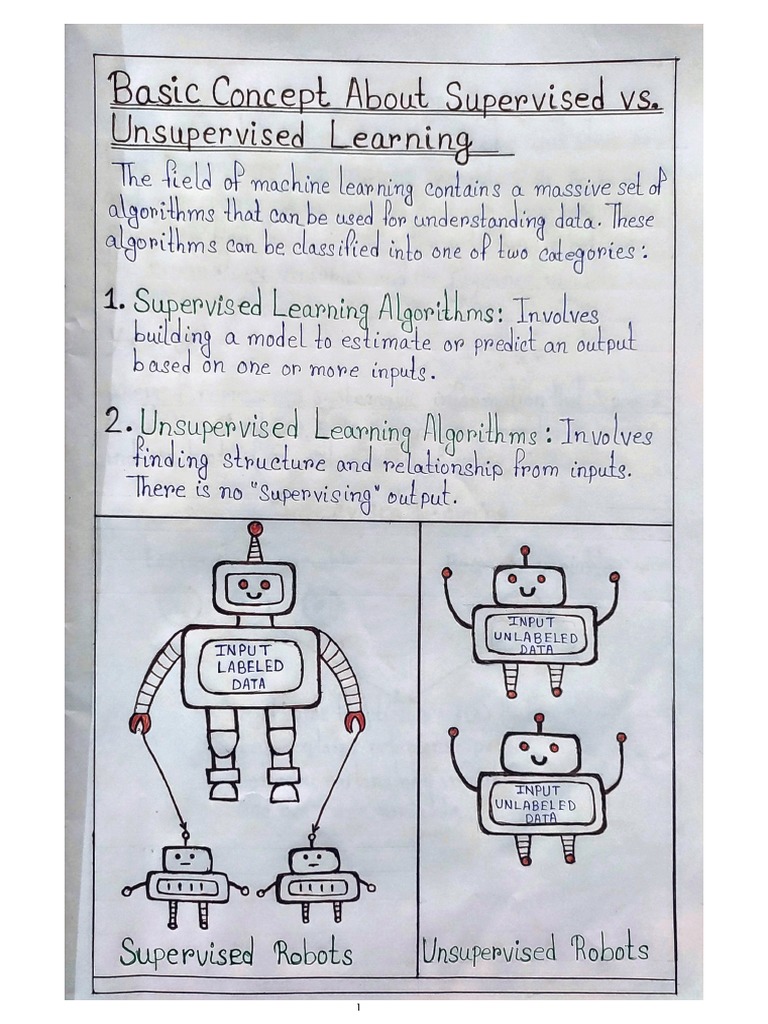 Basic Concept About Supervised vs.
Unsupervised Learning
The field of machine learning contains a massive set of
algorithms that can be used for understanding data. These
algorithms can be classified into one of two categories:
1. Supervised Learning Algorithms: Involves
building a model to estimate or predict an output
based on one or more inputs.
2. Unsupervised Learning Algorithms: Involves
finding structure and relationship from inputs.
There is no "Supervising" output.
INPUT
LABELED
DATA
Supervised Robots
INPUT
UNLABELED
DATA
INPUT
UNLABELED
DATA
Unsupervised Robots
1